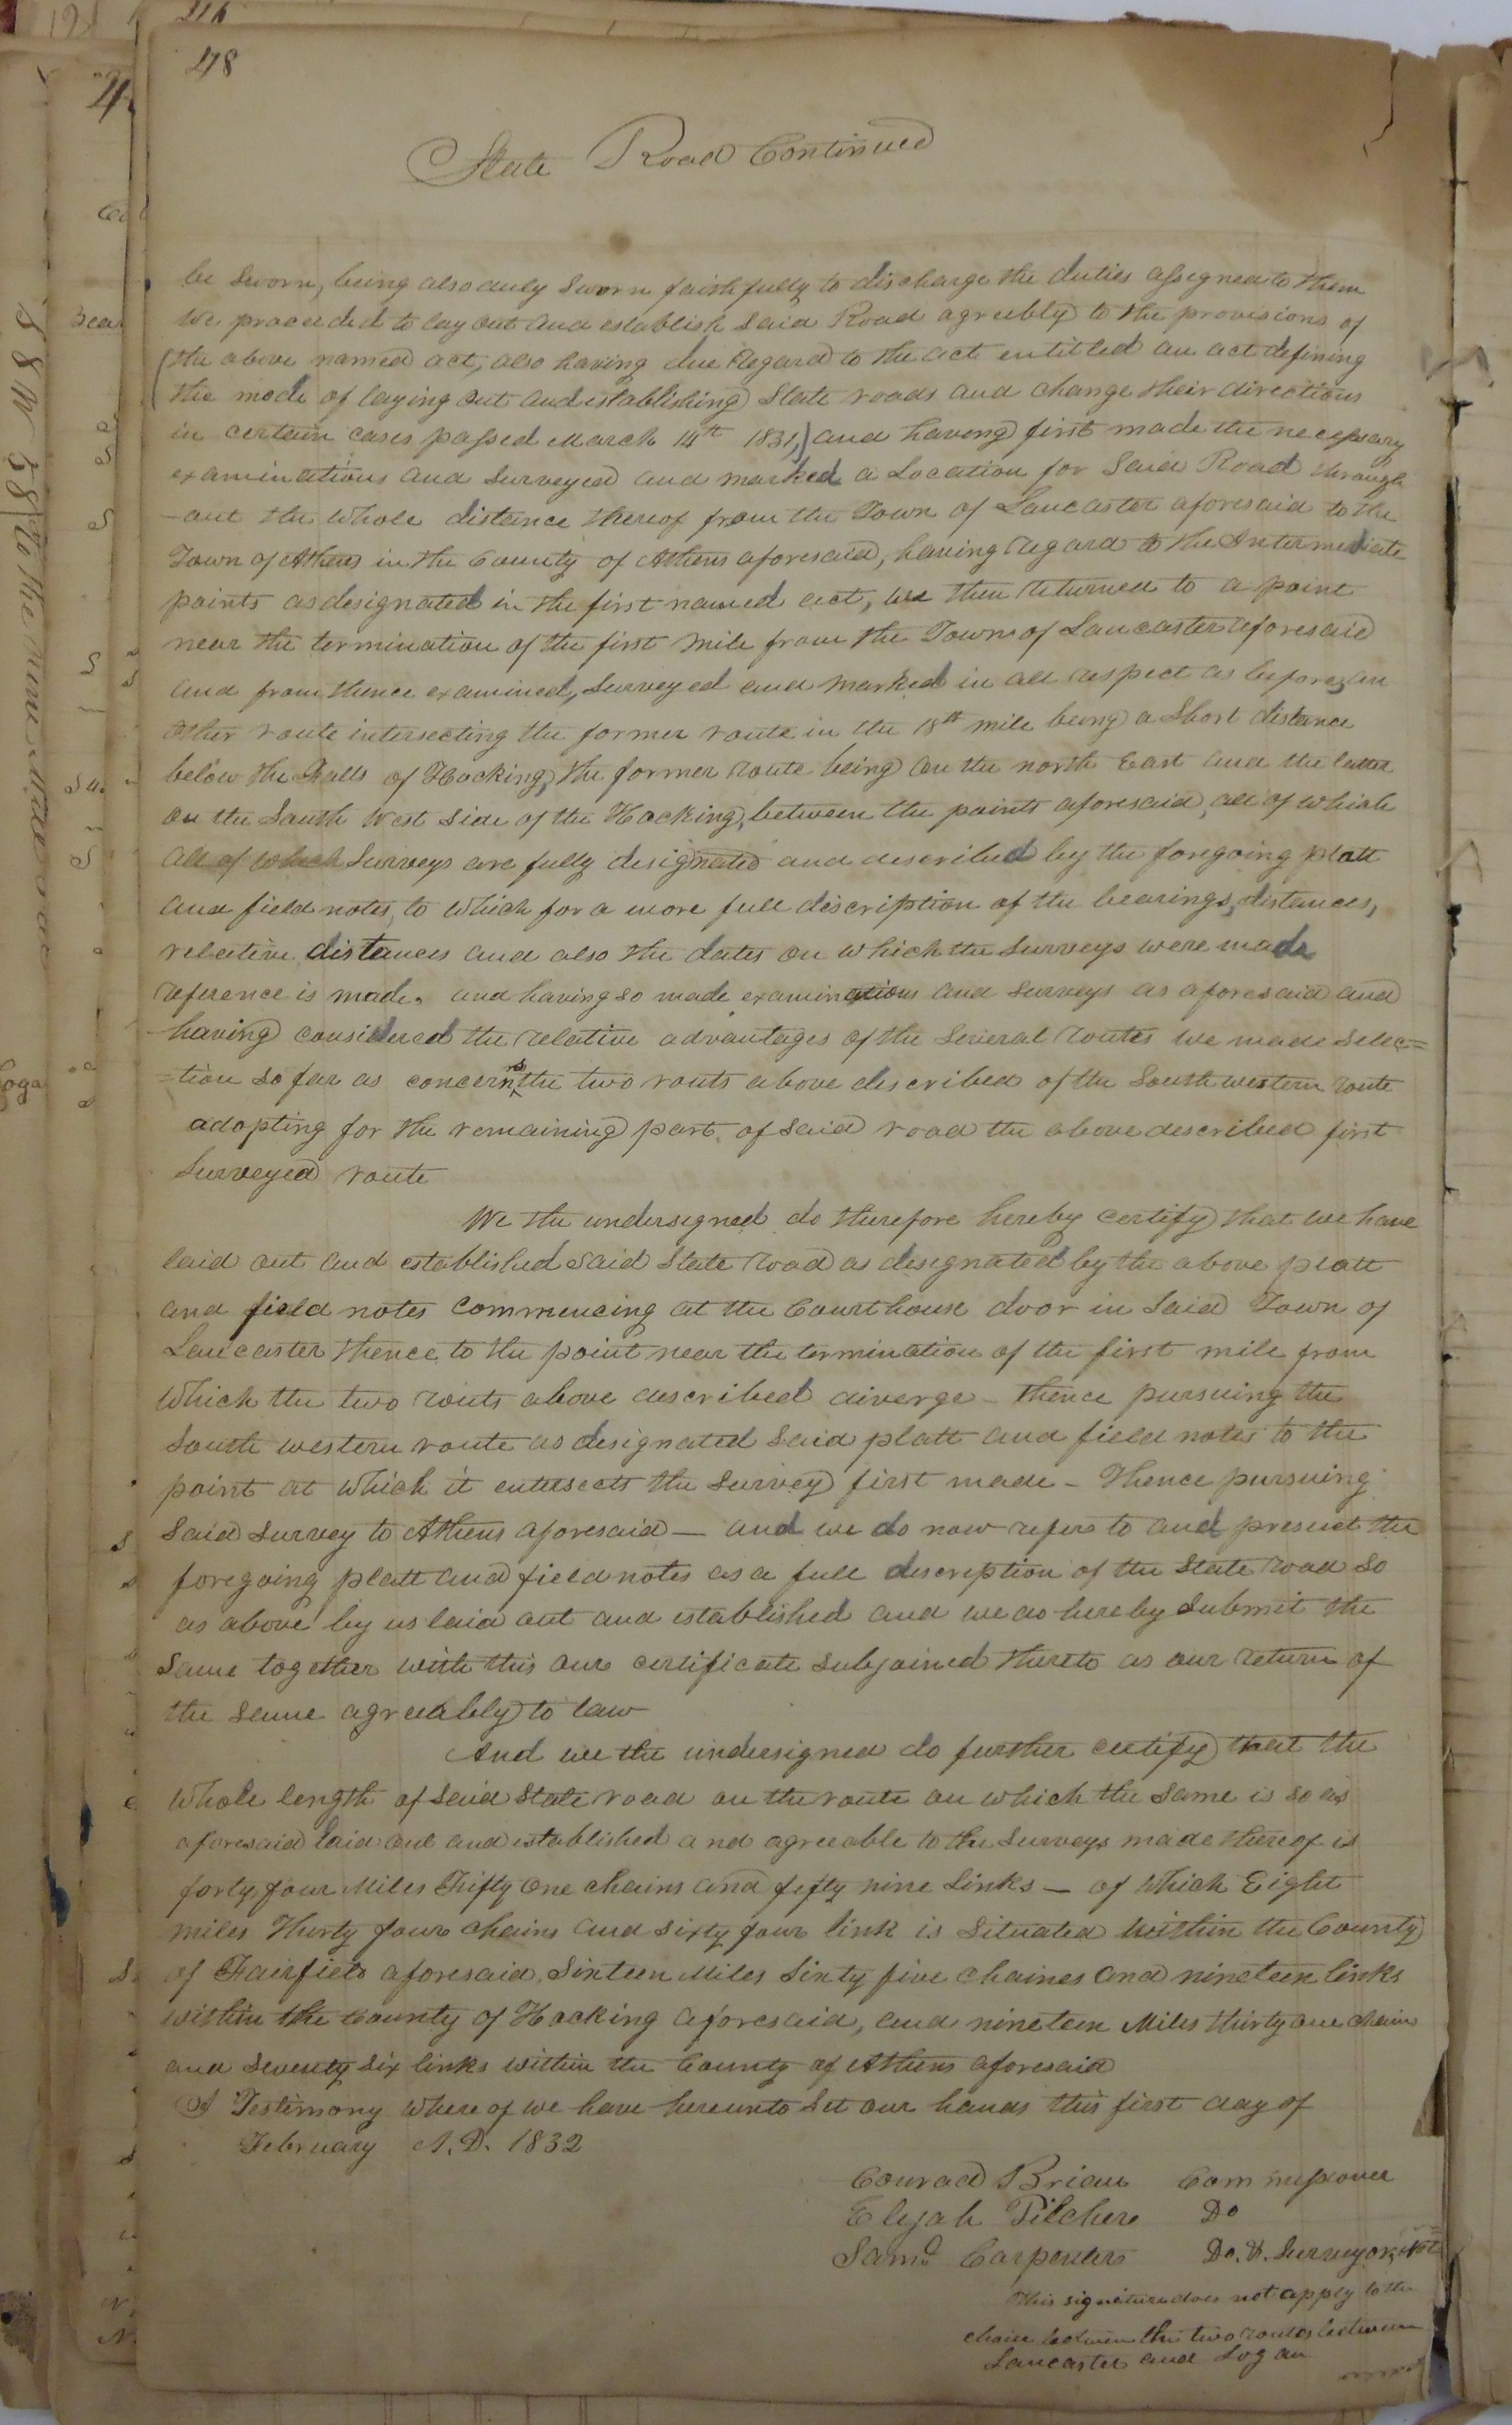 216
48
State Road Continued
be sworn, being also duly sworn faithfully to discharge the duties assigned to them
We proceeded to lay out and establish said Road agreebly to the provisions of
(the above named act, also having due Regard to the act entitled an act defining
the mode of laying out and establishing State roads and change their directions
in certain cases passed March 14th 1831,) and having first made the necessary
examinations and surveyed and marked a Location for said Road through
-out the whole distance thereof from the Town of Lancaster aforesaid to the
Town of Athens in the County of Athens aforesaid, having regard to the Intermediate
points as designated in the first named act, we then returned to a point
near the termination of the first mile from the Town of Lancaster aforesaid
and from thence examined, surveyed and marked in all respect as before, an
other route intersecting the former route in the 18th mile being a short distance
below the Falls of Hocking, the former route being on the north East and the latter
on the South West side of the Hocking, between the points aforesaid, all of which
all of which surveys are fully designated and described by the foregoing platt
and field notes, to which for a more full description of the bearings, distances,
relative distances and also the dates on which the surveys were made
reference is made. and having so made examinations and surveys as aforesaid and
having considered the relative advantages of the several routes we made selec=
=tion so far as concerns the two routs above described of the South western route
adopting for the remaining part of said road the above described first
Surveyed route
We the undersigned do therefore hereby certify that we have
laid out and established said State road as designated by the above platt
and field notes commencing at the Courthouse door in said Town of
Lancaster thence to the point near the termination of the first mile from
which the two routs above described diverge - thence pursuing the
South western route as designated said platt and field notes to the
point at which it entersects the survey first made - Thence pursuing
said survey to Athens aforesaid — and we do now refer to and present the
foregoing platt and field notes as a full description of the State road so
as above by us laid out and established and we do hereby submit the
same together with this our certificate subjoined thereto as our return of
the same agreeably to law
And we the undersigned do further certify that the
whole length of said State road on the route on which the same is so as
aforesaid laid out and established and agreeable to the surveys made thereof is
forty four Miles Fifty one chains and fifty nine Links — of which Eight
miles Thirty four chains and sixty four link is situated within the County
of Fairfield aforesaid, Sixteen Miles Sixty five chaines and nineteen links
within the County of Hocking aforesaid, and nineteen Miles thirty one chains
and seventy six links within the County of Athens aforesaid
I Testimony where of we have hereunto set our hands this first day of
February A.D. 1832
Conrad Brian Commissioner
Elijah Pilcher Do
Saml. Carpenter Do. & Surveyor,
This signature does not apply to the
choice between the two routes between
Lancaster and Logan